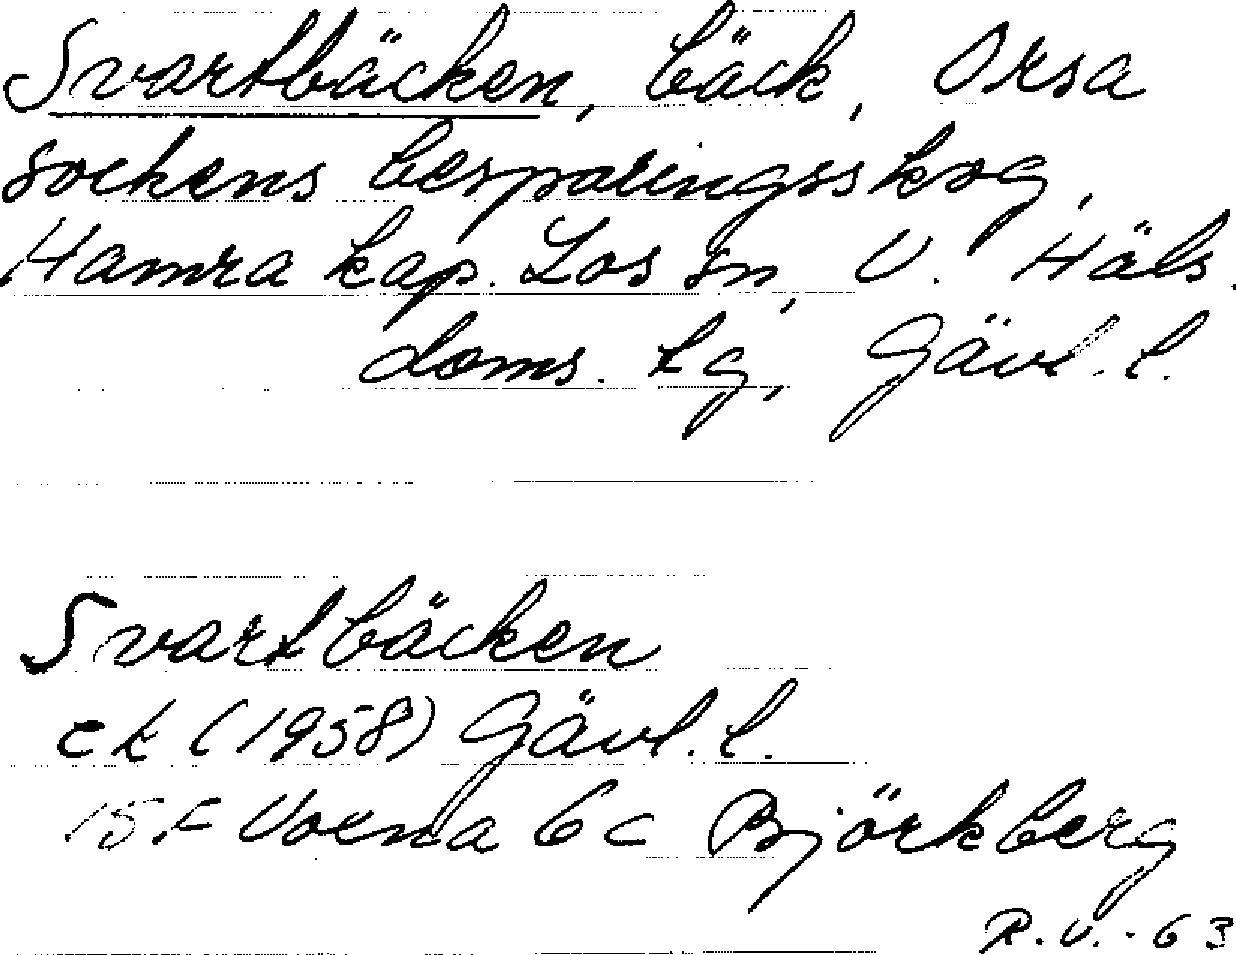 Svartbäcken, bäck, Orsa
sockens besparingsskog,
Hamra kap. Los sn, V. Häls.
doms. lg, Gävl. l.
Svartbäcken
ek (1958) Gävl. l.
15F Voxna 6c Björkberg
R.V. -63